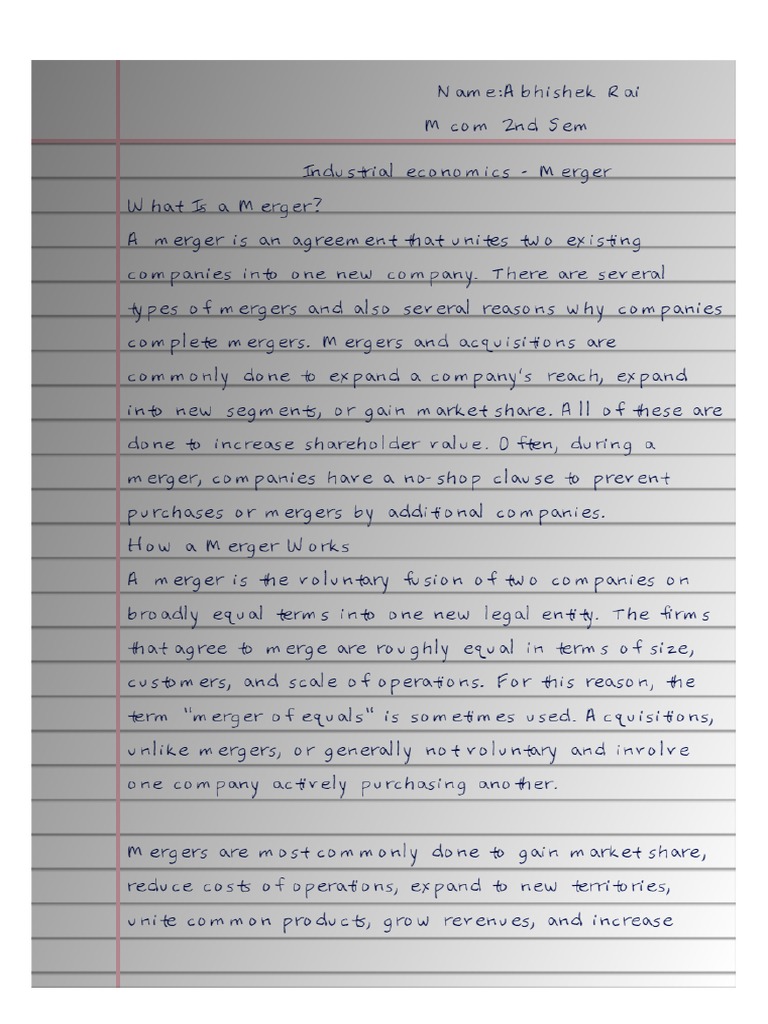 Name:Abhishek Rai
M com 2nd Sem
Industrial economics - Merger
What Is a Merger?
A merger is an agreement that unites two existing
companies into one new company. There are several
types of mergers and also several reasons why companies
complete mergers. Mergers and acquisitions are
commonly done to expand a company's reach, expand
into new segments, or gain market share. All of these are
done to increase shareholder value. Often, during a
merger, companies have a no-shop clause to prevent
purchases or mergers by additional companies.
How a Merger Works
A merger is the voluntary fusion of two companies on
broadly equal terms into one new legal entity. The firms
that agree to merge are roughly equal in terms of size,
customers, and scale of operations. For this reason, the
term "merger of equals" is sometimes used. Acquisitions,
unlike mergers, or generally not voluntary and involve
one company actively purchasing another.
Mergers are most commonly done to gain market share,
reduce costs of operations, expand to new territories,
unite common products, grow revenues, and increase